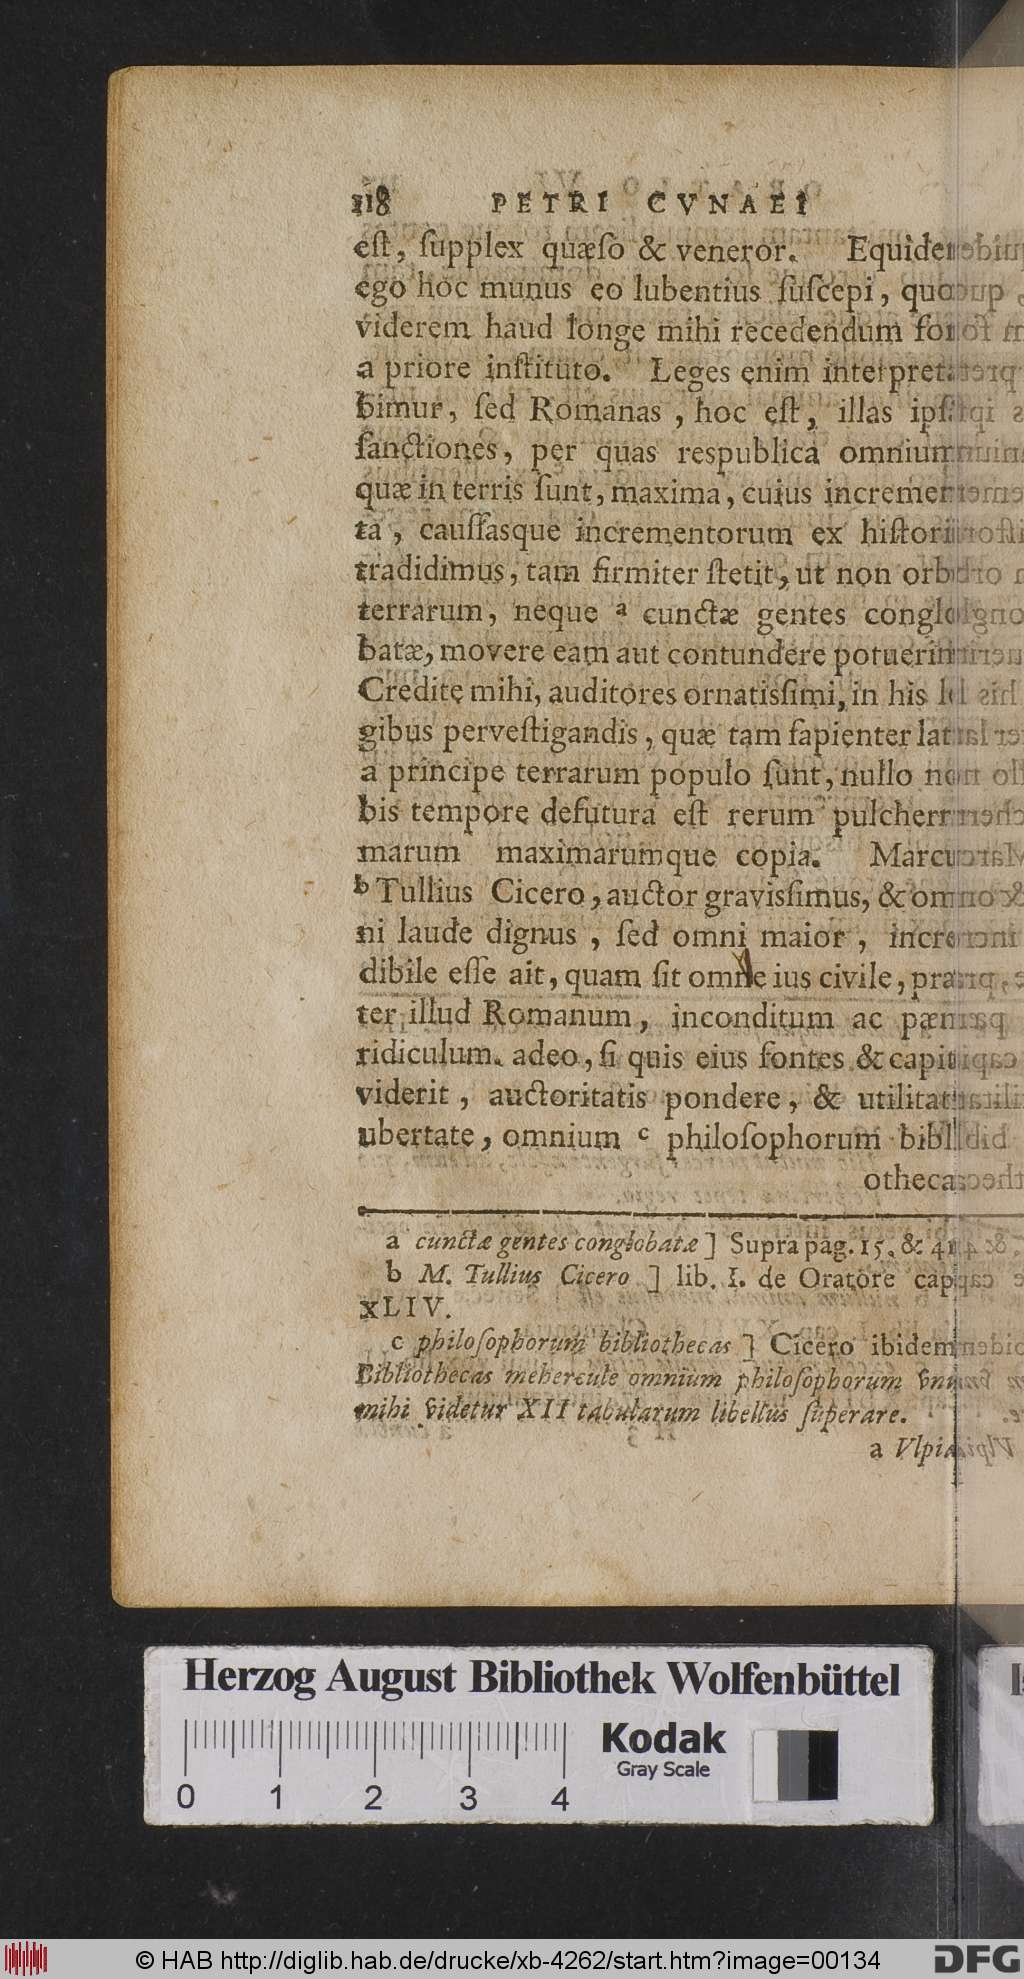 118 PETRI CVNAEI
eſt, ſupplex quæſo & veneror. Equidem
ego hoc munus eo lubentius ſuſcepi, quod
viderem haud longe mihi recedendum fore
a priore inſtituto. Leges enim interpreta-
bimur, ſed Romanas, hoc eſt, illas ipſas
ſanctiones, per quas respublica omnium
quæ in terris ſunt, maxima, cuius incremen-
ta, cauſſasque incrementorum ex hiſtoriis
tradidimus, tam firmiter ſtetit, ut non orbis
terrarum, neque a cunctæ gentes conglo-
batæ, movere eam aut contundere potuerint.
Credite mihi, auditores ornatisſimi, in his le-
gibus perveſtigandis, quæ tam ſapienter latæ
a principe terrarum populo ſunt, nullo no-
bis tempore defutura eſt rerum pulcherri-
marum maximarumque copia. Marcus
b Tullius Cicero, auctor gravisſimus, & om-
ni laude dignus, ſed omni maior, incre-
dibile eſſe ait, quam ſit omne ius civile, præ-
ter illud Romanum, inconditum ac pæne
ridiculum. adeo, ſi quis eius fontes & capita
viderit, auctoritatis pondere, & utilitatis
ubertate, omnium c philoſophorum bibli-
othecas
a cunctæ gentes conglobatæ] Supra pag. 15. & 41
b M. Tullius Cicero] lib. I. de Oratore cap.
XLIV.
c philoſophorum bibliothecas] Cicero ibidem
Bibliothecas mehercule omnium philoſophorum vnus
mihi videtur XII tabularum libellus ſuperare.
a Vlpia
Herzog August Bibliothek Wolfenbüttel
Kodak
Gray Scale
0 1 2 3 4
© HAB http://diglib.hab.de/drucke/xb-4262/start.htm?image=00134
DFG